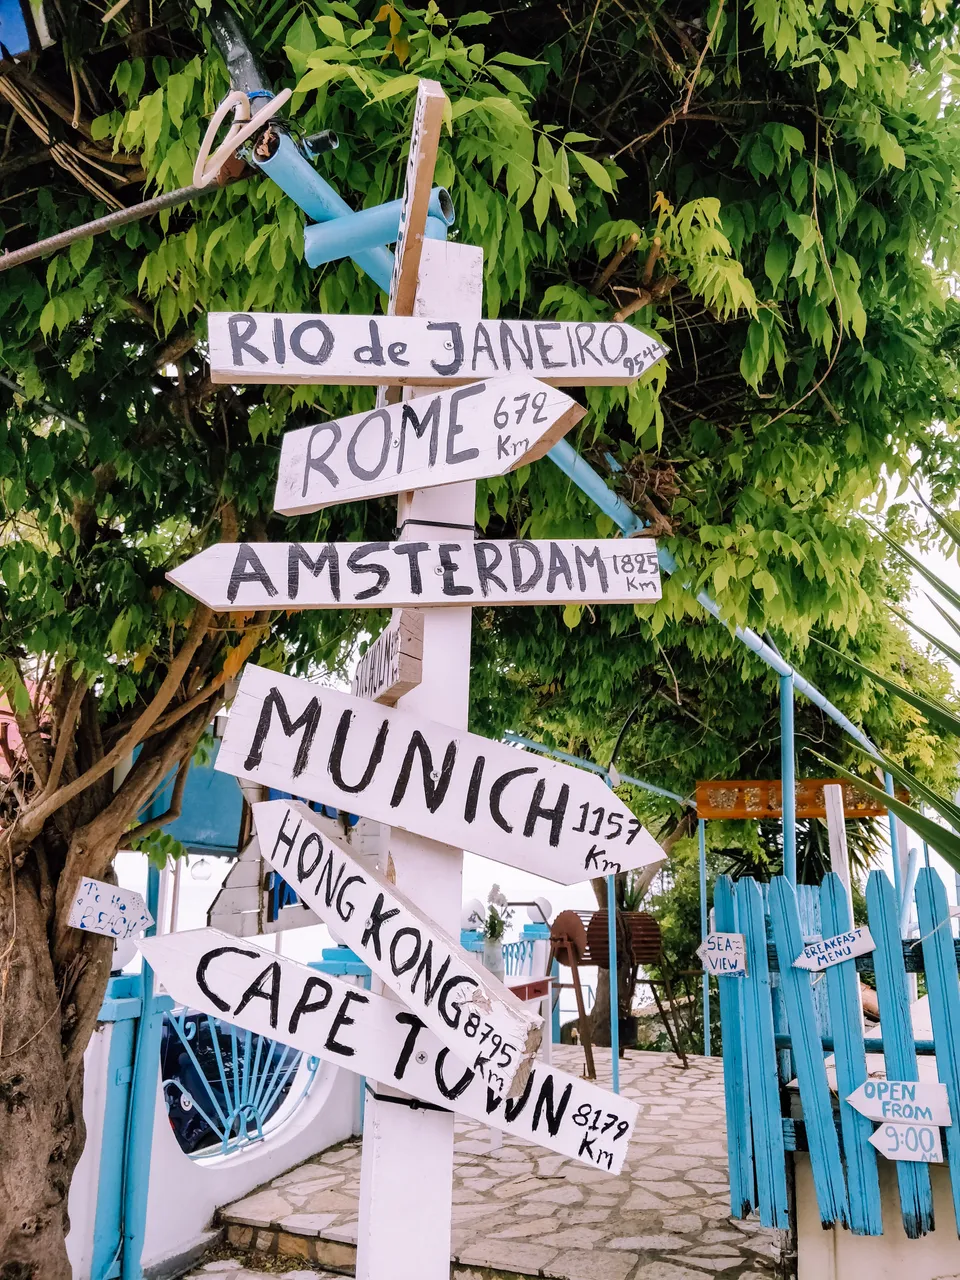 RIO de JANEIRO 9544
ROME 672
Km
AMSTERDAM 1825
Km
STOCKHOLM
MUNICH 1157
Km
HONG KONG 8795
Km
CAPE TOWN 8179
Km
To the
BEACH
SEA
VIEW
BREAKFAST
MENU
OPEN
FROM
9:00
AM